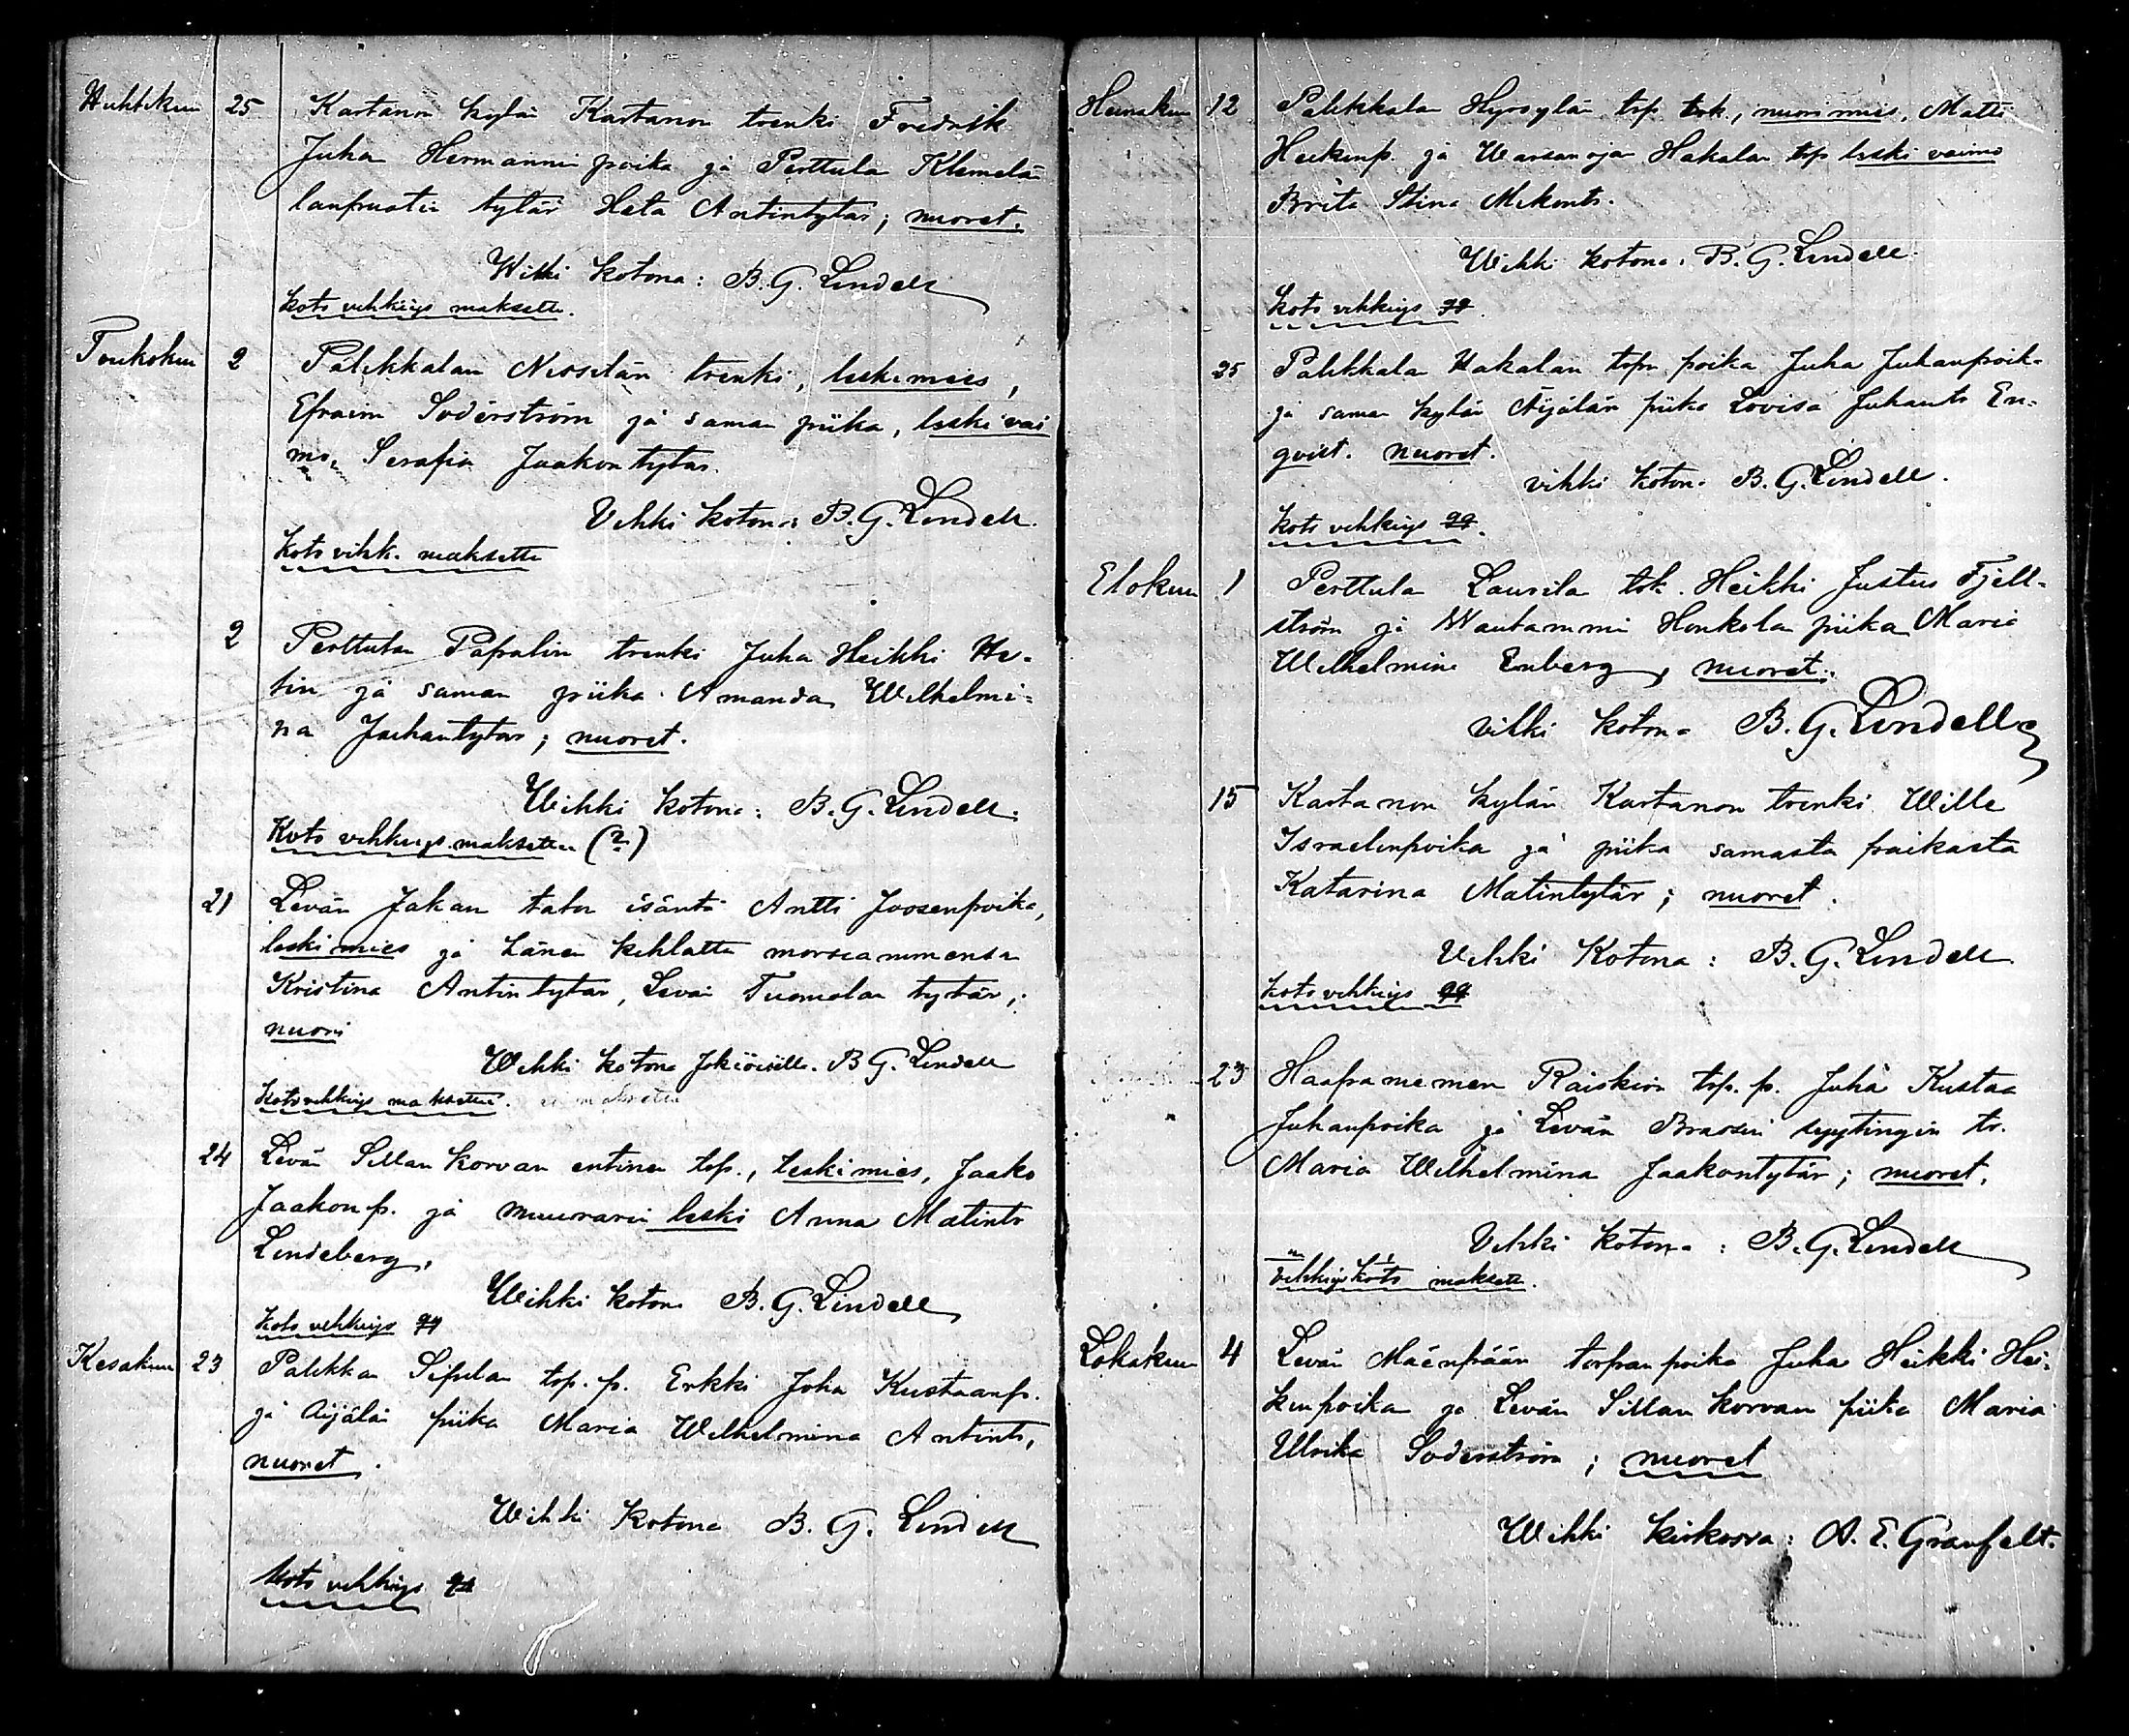 Huhtikuu 25 Kartanon kylän Kartanon trenki Fredrik
Juha Hermannin poika ja Perttula Klemelän
lanpuotin tytär Heta Antintytär; nuoret.
Wihki kotona: B. G. Lindell
koto vihkiys maksettu.
Toukokuu 2 Palikkalan trenki, leskimies,
Efraim Söderström ja saman piika, leski vai
mo, Serafia Jaakontytär.
Vihki kotona B. G. Lindell.
Koto vihk. maksettu
2 Perttulan Papalin trenki Juha Heikki He-
lin ja saman piika Amanda Wilhelmi-
na Juhantytär; nuoret.
Wihki kotona: B. G. Lindell.
Koto vihkiys maksettu (?)
21 Levän Jakan talon isäntä Antti Joosenpoika,
leskimies ja hänen kihlattu morsiammensa
Kristina Antintytär, Levän Tuomolan tytär;
nuori
Wihki kotona Jokioisilla. B G. Lindell
Kotovihkiys maksettu. ei maksettu
24 Levän Sillan korvan entinen top., leskimies, Jaako
Jaakonp. ja muurarin leski Anna Matintr
Lindeberg,
Wihki kotona B. G. Lindell
Koto vihkiys
Kesakuu 23 Palikka Sipilan top. p. Erkki Joha Kustaanp.
ja Äijälän piika Maria Wilhelmina Antintr,
nuoret.
Wihki Kotona B. G. Lindell
Koto vihkiys
Heinakuu 12 Palikkala Hyrsylän top tok., nuorimies, Matti
Heikinp. ja Warsanojan Hakalan top leski vaimo
Brita Stina Mikontr.
Wihki kotona. B. G. Lindell.
koto vihkiys
25 Palikkala Hakalan topn poika Juha Juhanpoik-
ja saman kylän Äijälän piika Lovisa Juhantr En-
qvist. nuoret.
vihki kotona B. G. Lindell.
koto vihkiys
Elokuu 1 Perttula Laurila tok. Heikki Justus Fjell-
ström ja Wautammin Honkolan piika Maria
Wilhelmina Enberg, nuoret.
vihki kotona B. G. Lindell
15 Kartanon kylän Kartanon trenki Wille
Israelinpoika ja piika samasta paikasta
Katarina Matintytär; nuoret.
Vihki Kotona: B. G. Lindell
koto vihkiys
23 Haapaniemen Räiskiön top. p. Juha Kustaa
Juhanpoika ja Levän syytingin tr.
Maria Wilhelmina Jaakontytär; nuoret.
Vihki kotona: B. G. Lindell
vihkiys koto maksettu.
Lokakuu 4 Levän Mäenpään torpan poika Juha Heikki Hei-
kinpoika ja Levän Sillan korvan piika Maria
Ulrika Söderström; nuoret
Wihki kirkossa: A. E. Granfelt.